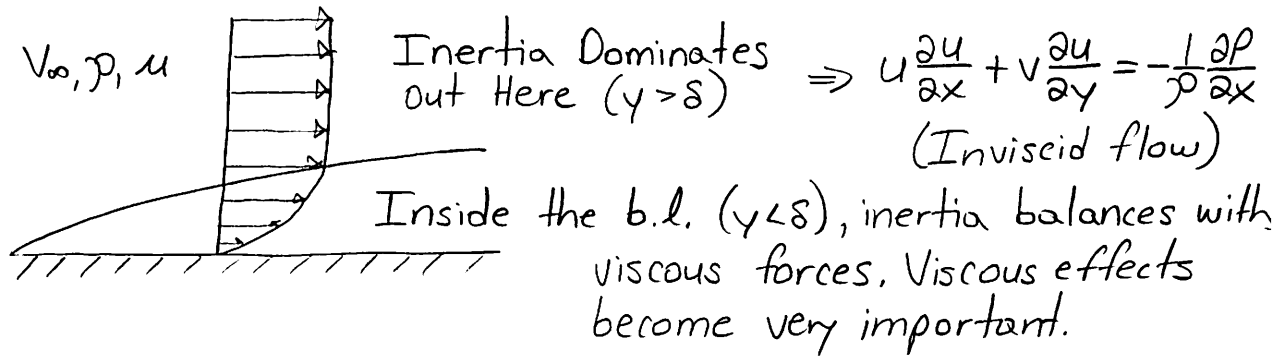 V∞, ρ, μ
Inertia Dominates
out Here (y>δ)
⇒ u ∂u/∂x + v ∂u/∂y = -1/ρ ∂P/∂x
(Inviscid flow)
Inside the b.l. (y<δ), inertia balances with
viscous forces. Viscous effects
become very important.